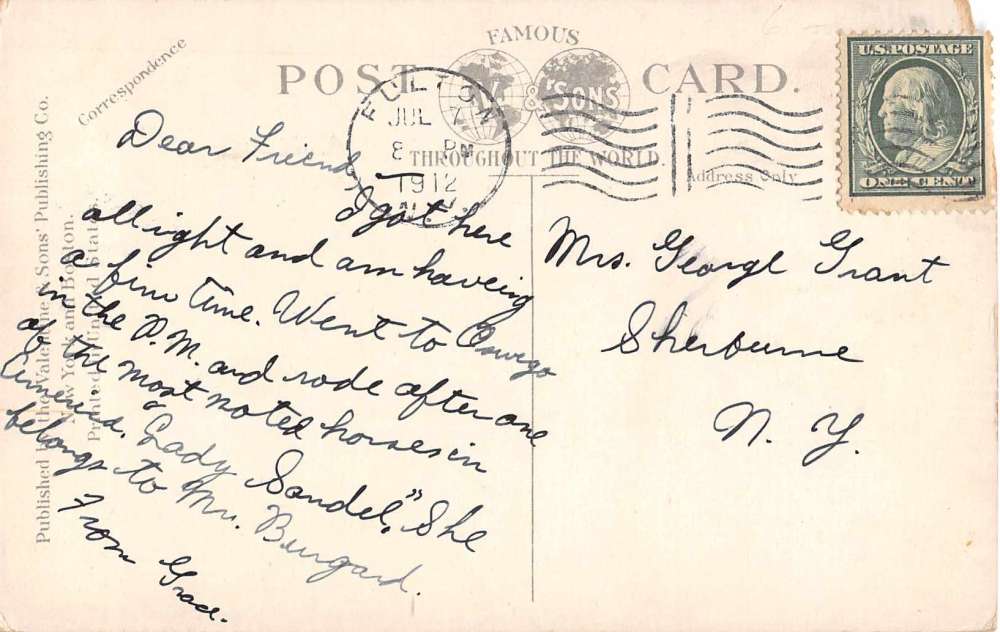 Correspondence
FAMOUS
POST CARD.
& SONS
THROUGHOUT THE WORLD.
Address Only
FULTON
JUL 7
8 PM
1912
N.Y.
U.S. POSTAGE
ONE CENT
Published by the Valentine & Sons' Publishing Co.
New York and Boston.
Printed in United States.
Dear Friend
I got here
allright and am haveing
a fine time. Went to Oswego
in the P.M. and rode after one
of the most noted horses in
America. "Lady Sandel," She
belongs to Mr. Burgard.
From Grace.
Mrs. George Grant
Sherburne
N. Y.